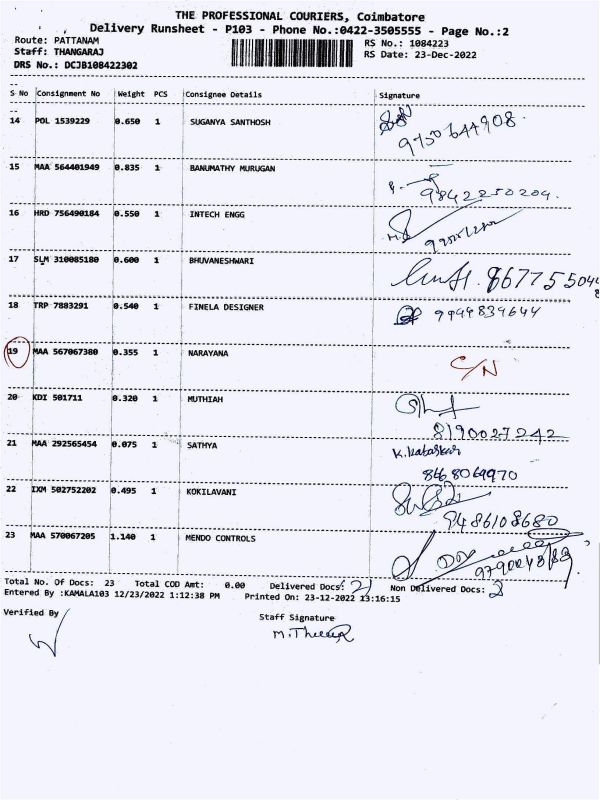 THE PROFESSIONAL COURIERS, Coimbatore
Delivery Runsheet - P103 - Phone No.:0422-3505555 - Page No.:2
Route: PATTANAM
RS No.: 1084223
Staff: THANGARAJ
RS Date: 23-Dec-2022
DRS No.: DCJB108422302
S No Consignment No Weight PCS Consignee Details Signature
14 POL 1539229 0.650 1 SUGANYA SANTHOSH
9750644908.
15 MAA 564401949 0.835 1 BANUMATHY MURUGAN
9842250204.
16 HRD 756490184 0.550 1 INTECH ENGG
17 SLM 310085180 0.600 1 BHUVANESHWARI
18 TRP 7883291 0.540 1 FINELA DESIGNER
19 MAA 567067380 0.355 1 NARAYANA C/N
20 KDI 501711 0.320 1 MUTHIAH
8190027242
21 MAA 292565454 0.075 1 SATHYA
8468069970
22 IXM 502752202 0.495 1 KOKILAVANI
9486108680
23 MAA 570067205 1.140 1 MENDO CONTROLS
Total No. Of Docs: 23 Total COD Amt: 0.00 Delivered Docs: 21 Non Delivered Docs: 2
Entered By :KAMALA103 12/23/2022 1:12:38 PM Printed On: 23-12-2022 13:16:15
Verified By
Staff Signature